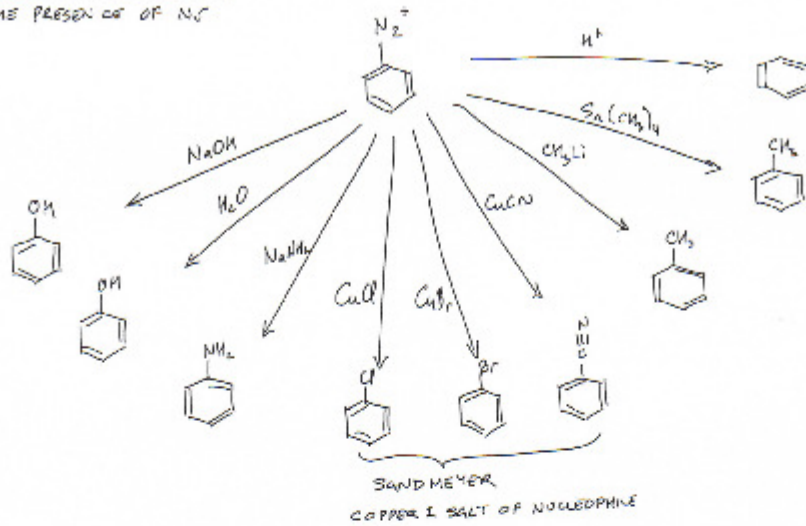 ME PRESENCE OF
N2+
H+
Sn(CH3)4
CH3
NaOH
H2O
NaNH2
CuCl
CuBr
CuCN
CH3Li
OH
OH
NH2
Cl
Br
N
C
CH3
SANDMEYER
COPPER I SALT OF NUCLEOPHILE